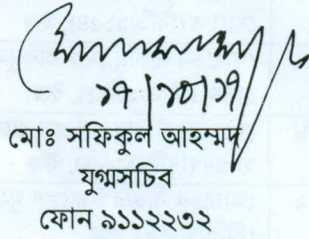 ১৭|১০|১৭
মোঃ সফিকুল আহম্মদ
যুগ্মসচিব
ফোন ৯১১২২৩২